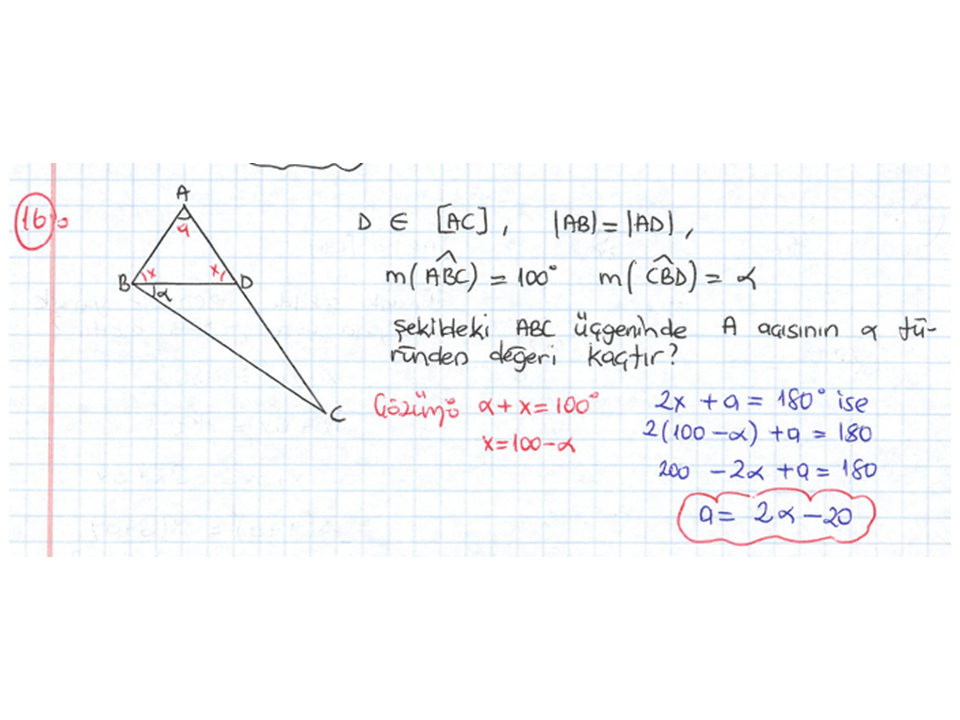 16:
A
a
B x x D
α
C
D ∈ [AC], |AB|=|AD|,
m(ABC) = 100° m(CBD) = α
şekildeki ABC üçgeninde A açısının α tü-
ründen değeri kaçtır?
Çözüm: α+x=100°
x=100-α
2x +a = 180° ise
2(100-α) +a = 180
200 -2α +a = 180
a = 2α-20